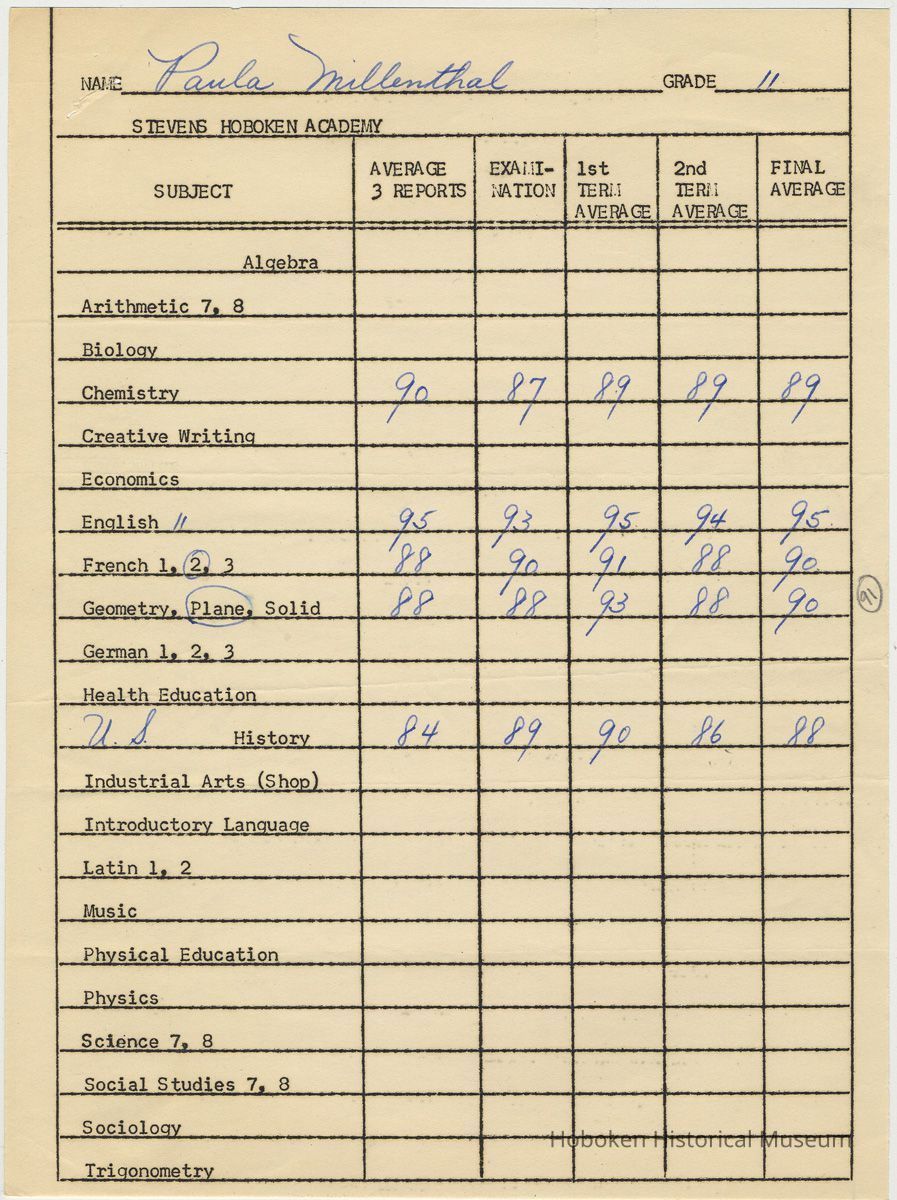 NAME Paula Millenthal GRADE 11
STEVENS HOBOKEN ACADEMY
SUBJECT AVERAGE 3 REPORTS EXAMI-NATION 1st TERM AVERAGE 2nd TERM AVERAGE FINAL AVERAGE
Algebra
Arithmetic 7, 8
Biology
Chemistry 90 87 89 89 89
Creative Writing
Economics
English 11 95 93 95 94 95
French 1, 2, 3 88 90 91 88 90
Geometry, Plane, Solid 88 88 93 88 90 91
German 1, 2, 3
Health Education
U. S. History 84 89 90 86 88
Industrial Arts (Shop)
Introductory Language
Latin 1, 2
Music
Physical Education
Physics
Science 7, 8
Social Studies 7, 8
Sociology
Hoboken Historical Museum
Trigonometry